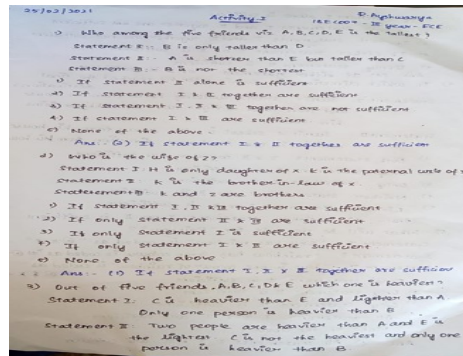 25/03/2021
Activity-2
D. Aishwarya
III year - ECE
1) Who among the five friends viz A, B, C, D, E is the tallest?
Statement I: B is only taller than D
Statement II: A is shorter than E but taller than C
Statement III: B is not the shortest
1) If statement alone is sufficient
2) If statement I & II together are sufficient
3) If statement I, II & III together are not sufficient
4) If statement I & III are sufficient
5) None of the above.
Ans: (2) If statement I & II together are sufficient
2) Who is the wife of Z?
Statement I: H is only daughter of X. K is the paternal uncle of
Statement II: K is the brother-in-law of X
Statement III: K and Z are brothers
1) If statement I, II & III together are sufficient
2) If only statement II & III are sufficient
3) If only statement I is sufficient
4) If only statement I & II are sufficient
5) None of the above
Ans: (1) If statement I, II & III together are sufficien
3) Out of five friends, A, B, C, D & E which one is heavier?
Statement I: C is heavier than E and lighter than A
Only one person is heavier than B
Statement II: Two people are heavier than A and E is
the lightest C is not the heaviest and only one
person is heavier than B